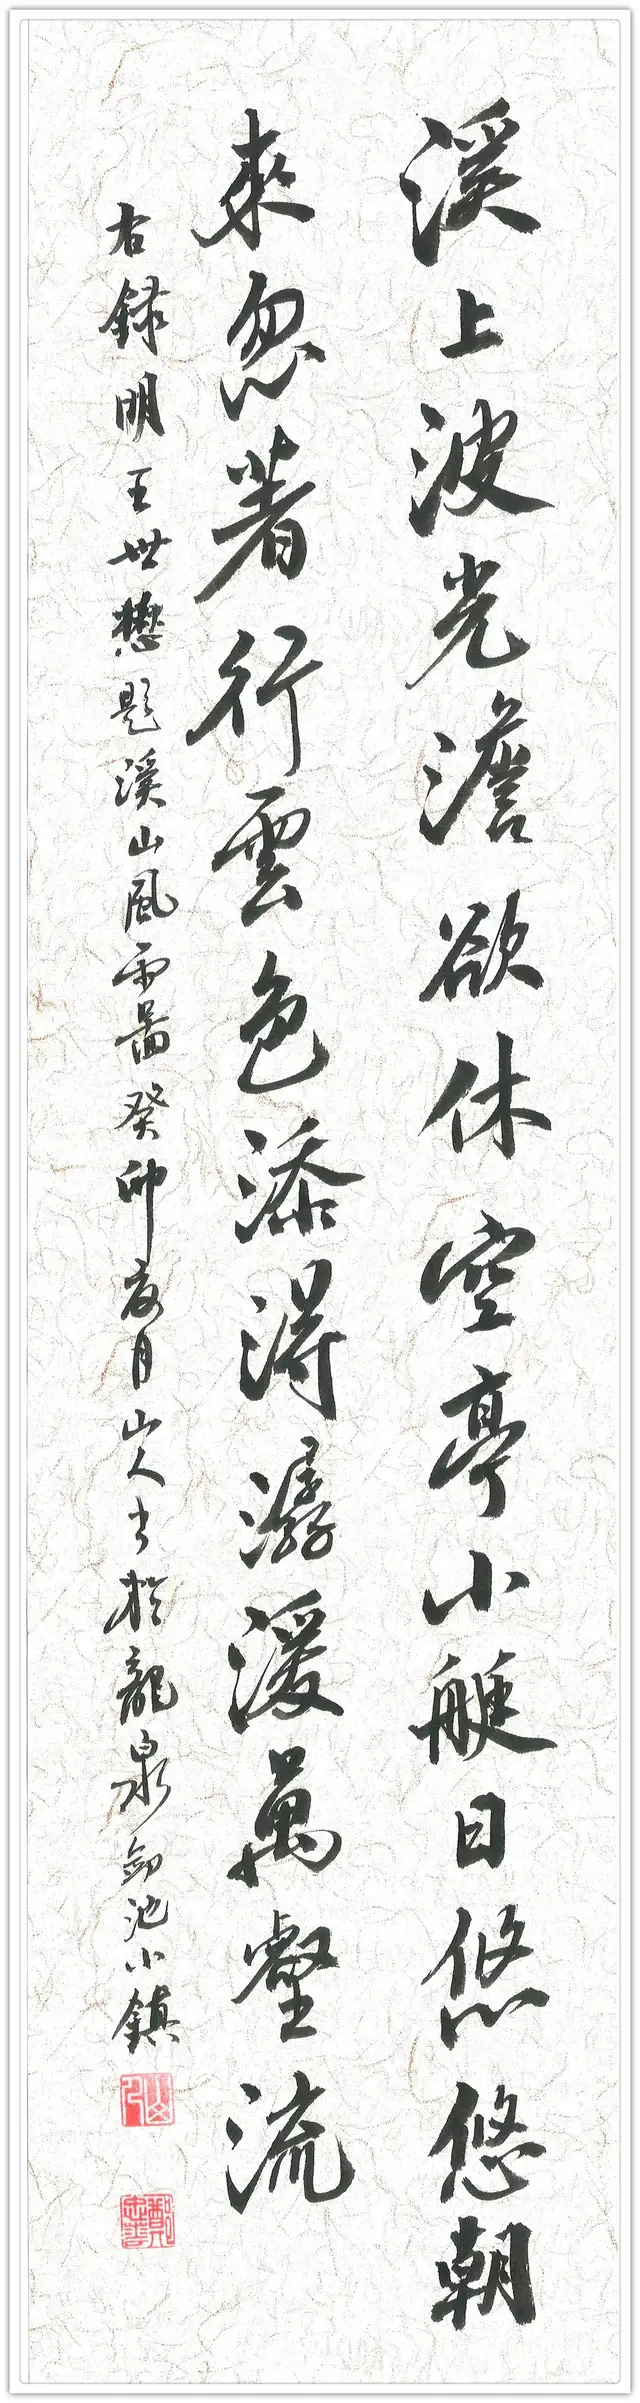 溪上波光澹欲休空亭小艇日悠悠朝
來忽著行雲色添得潺湲萬壑流
右錄明王世懋題溪山風雨圖癸卯夏月山人書於龍泉劍池小鎮
山人